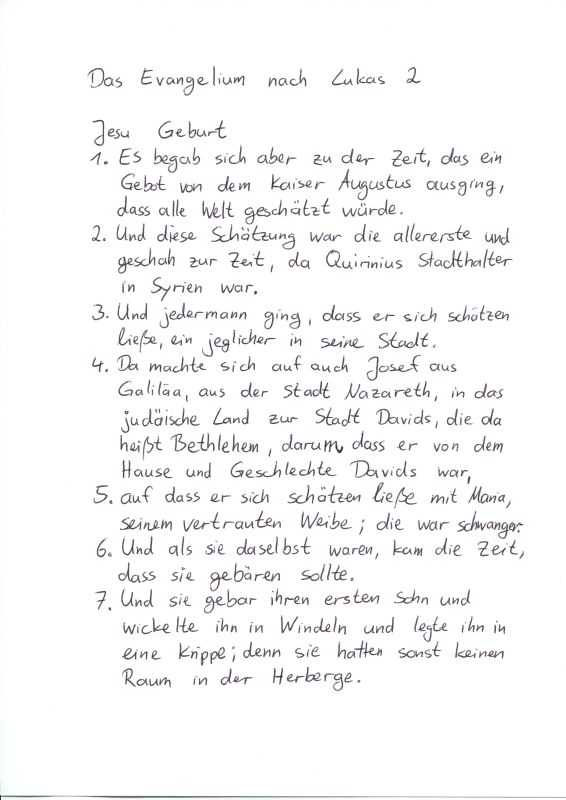 Das Evangelium nach Lukas 2
Jesu Geburt
1. Es begab sich aber zu der Zeit, das ein
Gebot von dem Kaiser Augustus ausging,
dass alle Welt geschätzt würde.
2. Und diese Schätzung war die allererste und
geschah zur Zeit, da Quirinius Stadthalter
in Syrien war.
3. Und jedermann ging, dass er sich schätzen
ließe, ein jeglicher in seine Stadt.
4. Da machte sich auf auch Josef aus
Galiläa, aus der Stadt Nazareth, in das
judäische Land zur Stadt Davids, die da
heißt Bethlehem, darum, dass er von dem
Hause und Geschlechte Davids war,
5. auf dass er sich schätzen ließe mit Maria,
seinem vertrauten Weibe; die war schwanger.
6. Und als sie daselbst waren, kam die Zeit,
dass sie gebären sollte.
7. Und sie gebar ihren ersten Sohn und
wickelte ihn in Windeln und legte ihn in
eine Krippe; denn sie hatten sonst keinen
Raum in der Herberge.